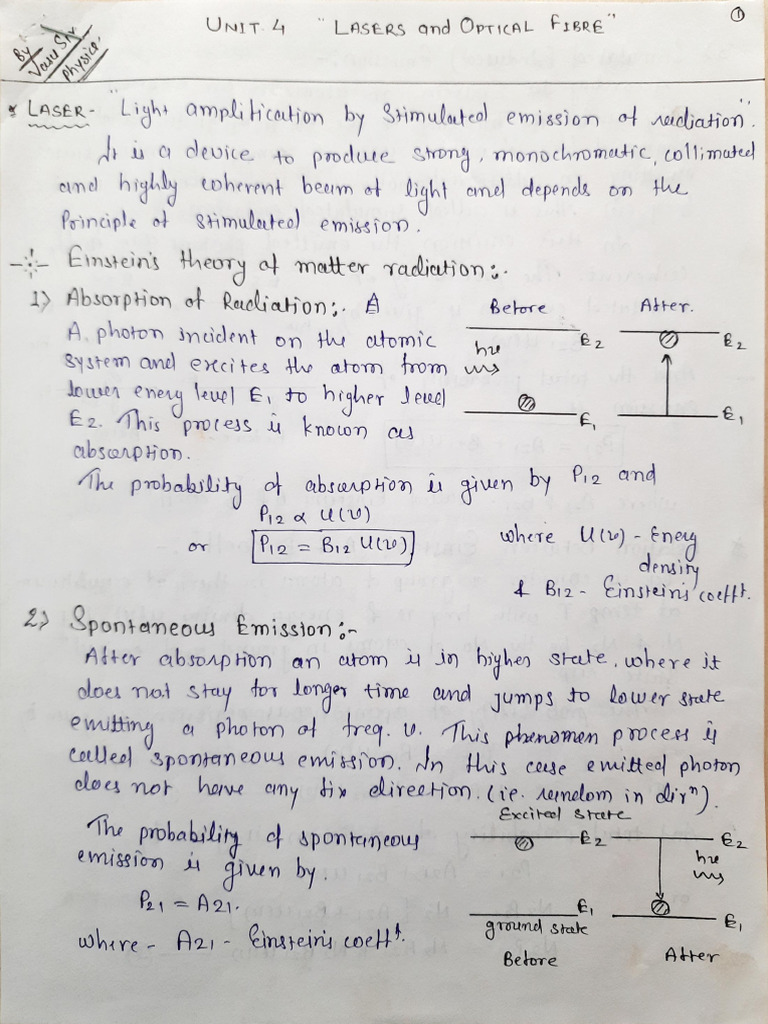 UNIT 4 "LASERS and OPTICAL FIBRE"
1
By
Physics
* LASER - "Light amplification by Stimulated emission of radiation".
It is a device to produce strong, monochromatic, collimated
and highly coherent beam of light and depends on the
Principle of stimulated emission.
Einstein's theory of matter radiation:-
1) Absorption of Radiation:- A
A photon incident on the atomic
system and excites the atom from
lower energy level E1 to higher level
E2. This process is known as
absorption.
Before After.
E2 E2
hν
E1 E1
The probability of absorption is given by P12 and
P12 ∝ U(ν)
or P12 = B12 U(ν)
where U(ν) - Energy
density
& B12 - Einstein's coefft.
2) Spontaneous Emission:-
After absorption an atom is in higher state, where it
does not stay for longer time and jumps to lower state
emitting a photon of freq. ν. This phenomen process is
called spontaneous emission. In this case emitted photon
does not have any fix direction. (ie. random in dirⁿ).
The probability of spontaneous
emission is given by.
P21 = A21.
where - A21 - Einstein's coefft.
Excited state
E2 E2
hν
E1 E1
ground state
Before After